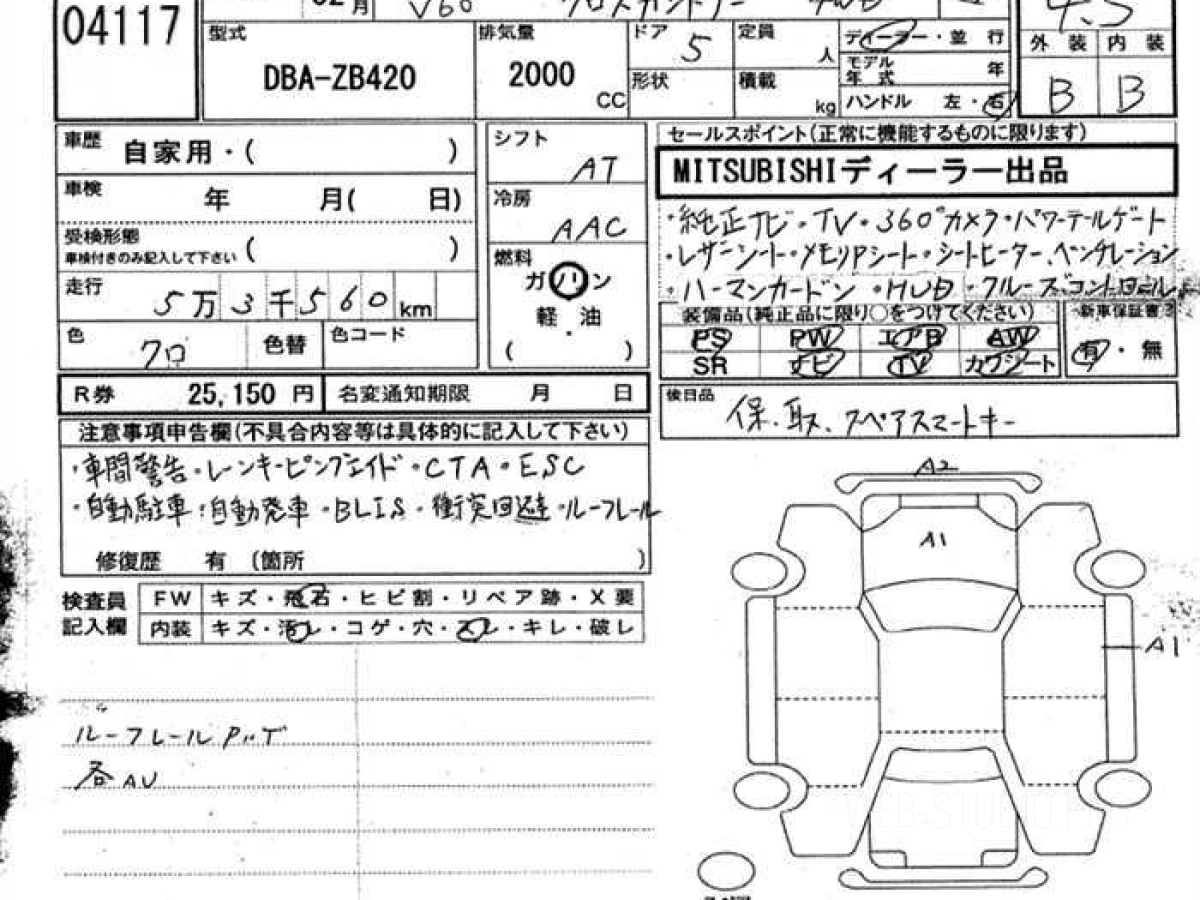 04117
月 V60 クロスカントリー 4WD 4.5
型式 DBA-ZB420
排気量 2000 CC
ドア 5
形状
定員 人
積載 kg
ディーラー・並行
モデル年式 年
ハンドル 左・右
外装 内装
B B
車歴 自家用・( )
車検 年 月( 日)
受検形態
車検付きのみ記入して下さい ( )
走行 5万3千560km
色 クロ 色替 色コード
シフト AT
冷房 AAC
燃料
ガソリン
軽・油
( )
セールスポイント(正常に機能するものに限ります)
MITSUBISHIディーラー出品
・純正ナビ・TV・360°カメラ・パワーテールゲート
・レザーシート・メモリアシート・シートヒーター、ベンチレーション
・ハーマンカードン・HUD・クルーズコントロール
装備品(純正品に限り○をつけてください) 新車保証書
PS PW エアB AW 有・無
SR ナビ TV カワシート
R券 25,150 円 名変通知期限 月 日
後日品 保、取、スペアスマートキー
注意事項申告欄(不具合内容等は具体的に記入して下さい)
・車間警告・レーンキーピングエイド・CTA・ESC
・自動駐車・自動発車・BLIS・衝突回避・ルーフレール
修復歴 有 (箇所 )
検査員記入欄
FW キズ・飛石・ヒビ割・リペア跡・X要
内装 キズ・汚レ・コゲ・穴・スレ・キレ・破レ
ルーフレール
各AU
A2
A1
A1